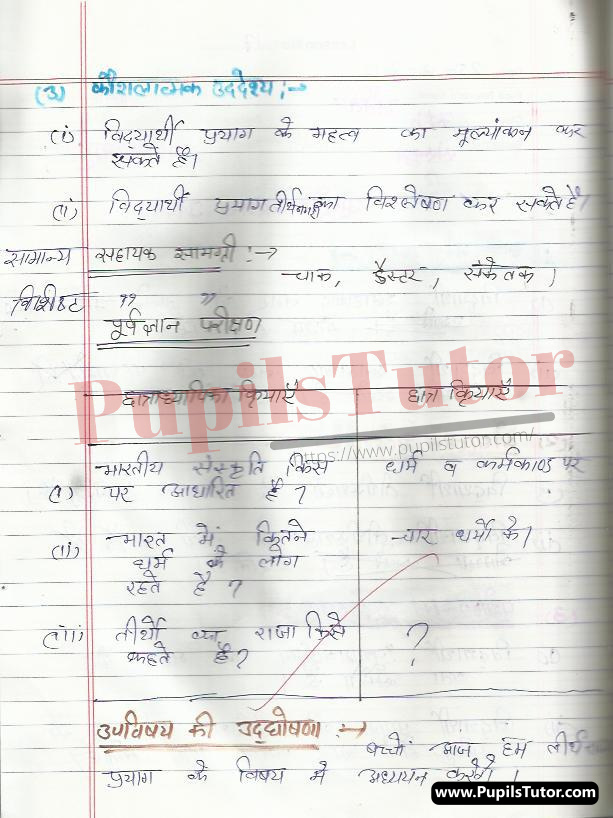 (3) कौशलात्मक उददेश्य :→
(i) विद्यार्थी प्रयाग के महत्व का मूल्यांकन कर
सकते हैं।
(ii) विद्यार्थी प्रयाग तीर्थ का विश्लेषण कर सकते है।
सामान्य सहायक सामग्री :→
चाक, डैस्टर, संकेतक।
विशिष्ट " "
पूर्वज्ञान परीक्षण
छात्राध्यापिका क्रियाएँ छात्र क्रियाएँ
PupilsTutor
https://www.pupilstutor.com/
भारतीय संस्कृति किस धर्म व कर्मकाण्ड पर
(i) पर आधारित है ?
(ii) भारत में कितने चार धर्मो के।
धर्म के लोग
रहते है ?
(iii) तीर्थो का राजा किसे ?
कहते है?
उपविषय की उद्घोषणा :→
बच्चों आज हम
प्रयाग के विषय मे अध्ययन करेगे।
www.PupilsTutor.com